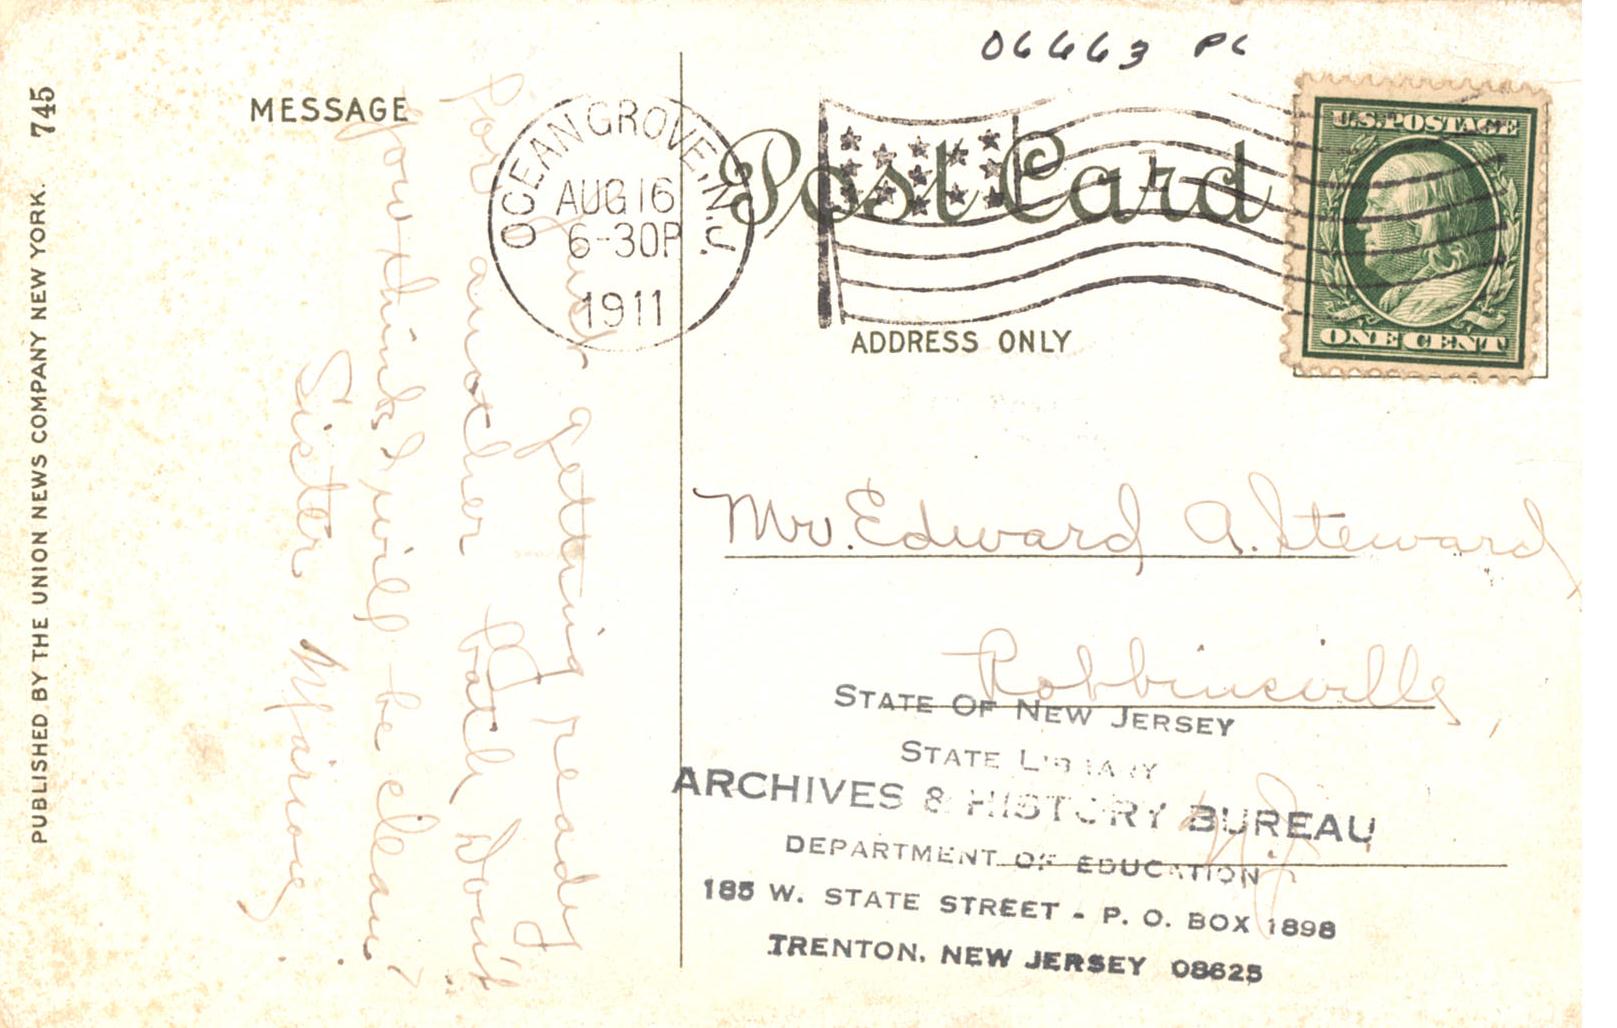 06663 PC
745
PUBLISHED BY THE UNION NEWS COMPANY NEW YORK.
MESSAGE
Just getting ready
for another bath Don't
you think I will be clean?
Sister
OCEAN GROVE, N.J.
AUG 16
6-30P
1911
Post Card
1
U.S. POSTAGE
ONE CENT
ADDRESS ONLY
Mr. Edward A. Steward
Robbinsville,
N.J.
STATE OF NEW JERSEY
STATE LIBRARY
ARCHIVES & HISTORY BUREAU
DEPARTMENT OF EDUCATION
185 W. STATE STREET - P. O. BOX 1898
TRENTON, NEW JERSEY 08625